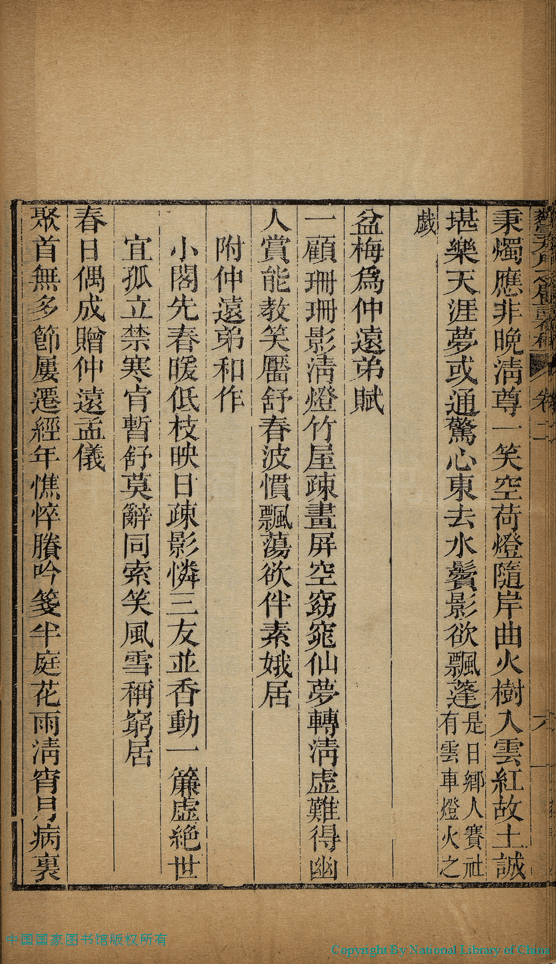 秉燭應非晚淸尊一笑空荷燈隨岸曲火樹入雲紅故土誠
堪樂天涯夢或通驚心東去水鬢影欲飄蓬是日鄉人賽社
有雲車燈火之
戲
盆梅爲仲遠弟賦
一顧珊珊影淸燈竹屋疎畫屏空窈窕仙夢轉淸虛難得幽
人賞能教笑靨舒春波慣飄蕩欲伴素娥居
附仲遠弟和作
小閣先春暖低枝映日疎影憐三友並香動一簾虛絕世
宜孤立禁寒肯暫舒莫辭同索笑風雪稱窮居
春日偶成贈仲遠孟儀
聚首無多節屢遷經年憔悴賸吟箋半庭花雨淸宵月病裏
卷二
中国国家图书馆版权所有
Copyright By National Library of China